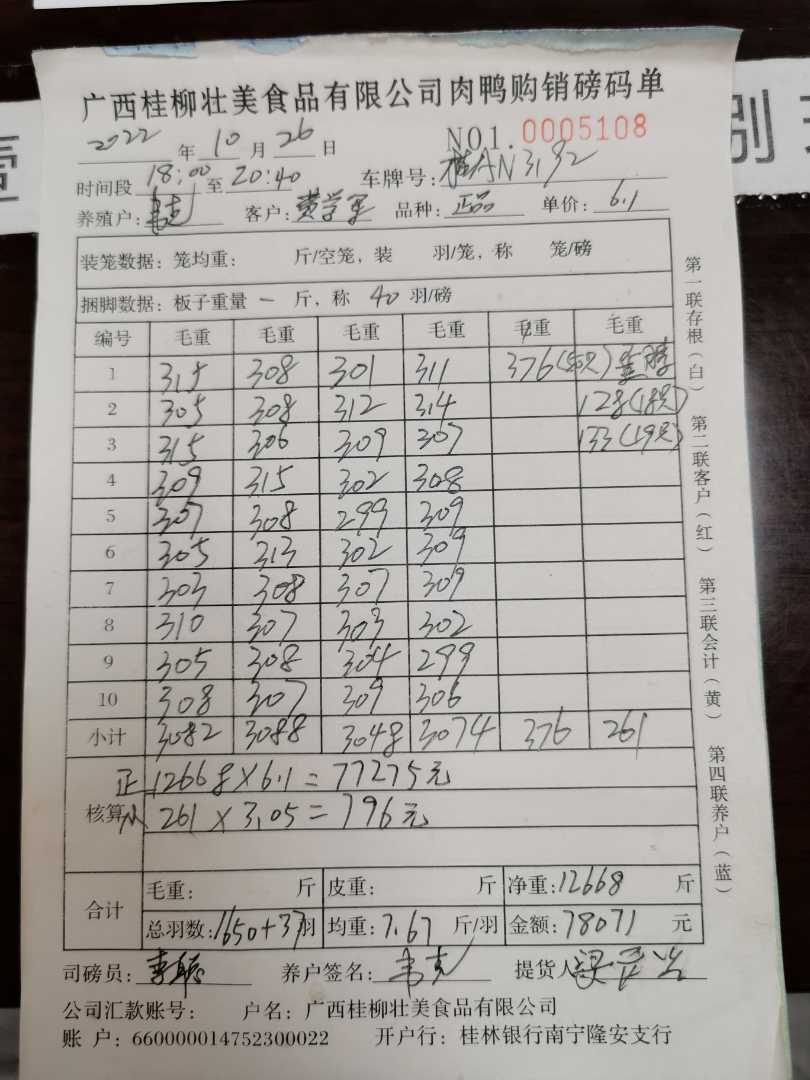 广西桂柳壮美食品有限公司肉鸭购销磅码单
2022 年 10 月 26 日 NO1. 0005108
时间段 18:00 至 20:40 车牌号: 桂AN3192
养殖户: 客户: 黄学军 品种: 正品 单价: 6.1
装笼数据: 笼均重: 斤/空笼, 装 羽/笼, 称 笼/磅
捆脚数据: 板子重量 一 斤, 称 40 羽/磅
编号 毛重 毛重 毛重 毛重 毛重 毛重
1 315 308 301 311 376
2 305 308 312 314 128(18只)
3 315 306 309 307 133(19只)
4 309 315 302 308
5 307 308 299 309
6 305 313 302 309
7 303 308 307 309
8 310 307 303 302
9 305 308 304 299
10 308 307 309 306
小计 3082 3088 3048 3074 376 261
正 12668×6.1=77275元
核算 261×3.05=796元
合计 毛重: 斤 皮重: 斤 净重: 12668 斤
总羽数: 1650+37羽 均重: 7.67 斤/羽 金额: 78071 元
司磅员: 养户签名: 提货人
公司汇款账号: 户名: 广西桂柳壮美食品有限公司
账 户: 660000014752300022 开户行: 桂林银行南宁隆安支行
第一联存根(白) 第二联客户(红) 第三联会计(黄) 第四联养户(蓝)